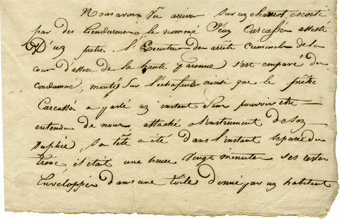 Nous avons vu arriver sur un chariot escorté
par des Gendarmes le nommé Jean Carcassés assisté
D'un prêtre. l'Executeur des arrets Criminels de la
cour d'assises de la haute Garonne s'est emparé du
Condamné, montés sur l'echafaud ainsi que le prêtre
Carcassés a parlé un instant sans pouvoir être
entendu de nous attaché a l'instrument de son
Suplice, Sa tête a été dans l'instant separée du
tronc il était une heure Vingt minutes ses restes
Enveloppés dans une toile donnée par un habitant